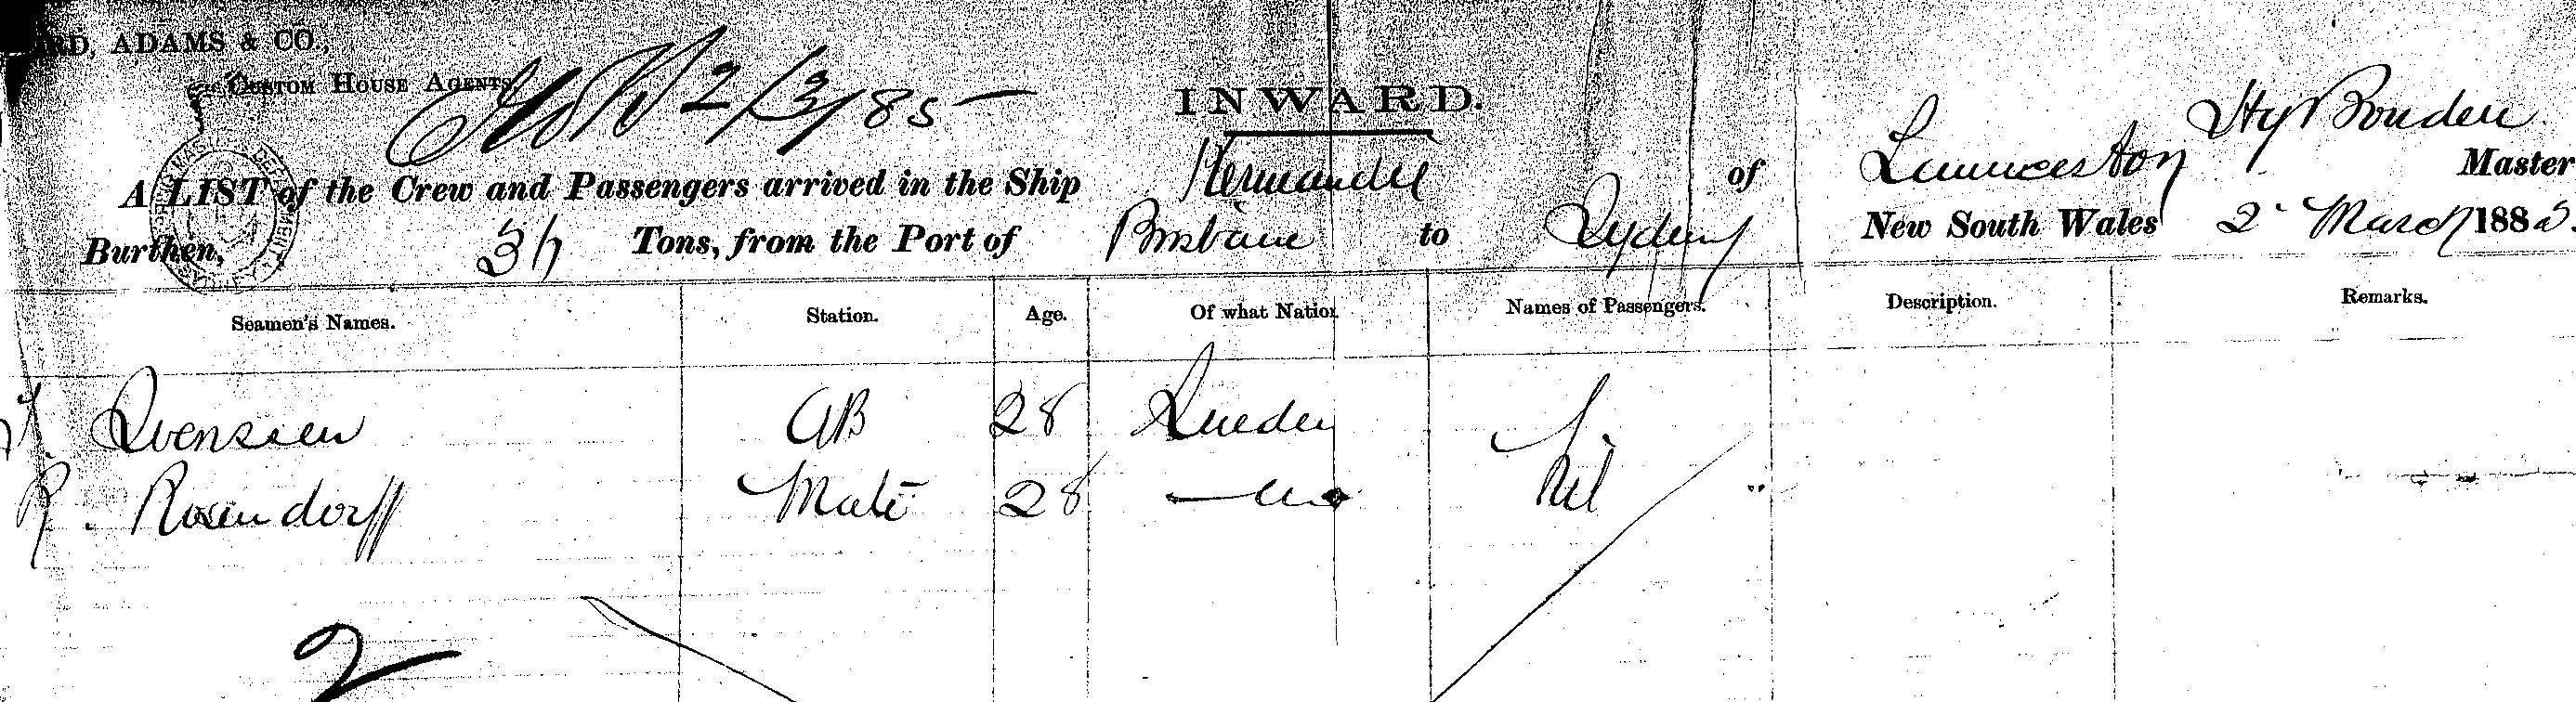 RD, ADAMS & CO.,
CUSTOM HOUSE AGENTS.
2/3/85
INWARD.
Hy Bouden
A LIST of the Crew and Passengers arrived in the Ship of Launceston Master
Burthen, Tons, from the Port of Brisbane to Sydney New South Wales 2 March 1885.
Seamen's Names. Station. Age. Of what Nation Names of Passengers. Description. Remarks.
Svenssen AB 28 Sweden
R. Rosendorff Mate 28 Nil
2